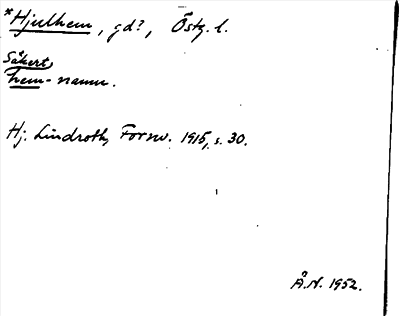 *Hjulhem, gd?, Östg. l.
Säkert
hem-namn.
Hj. Lindroth, Fornv. 1915, s. 30.
Å.N. 1952.